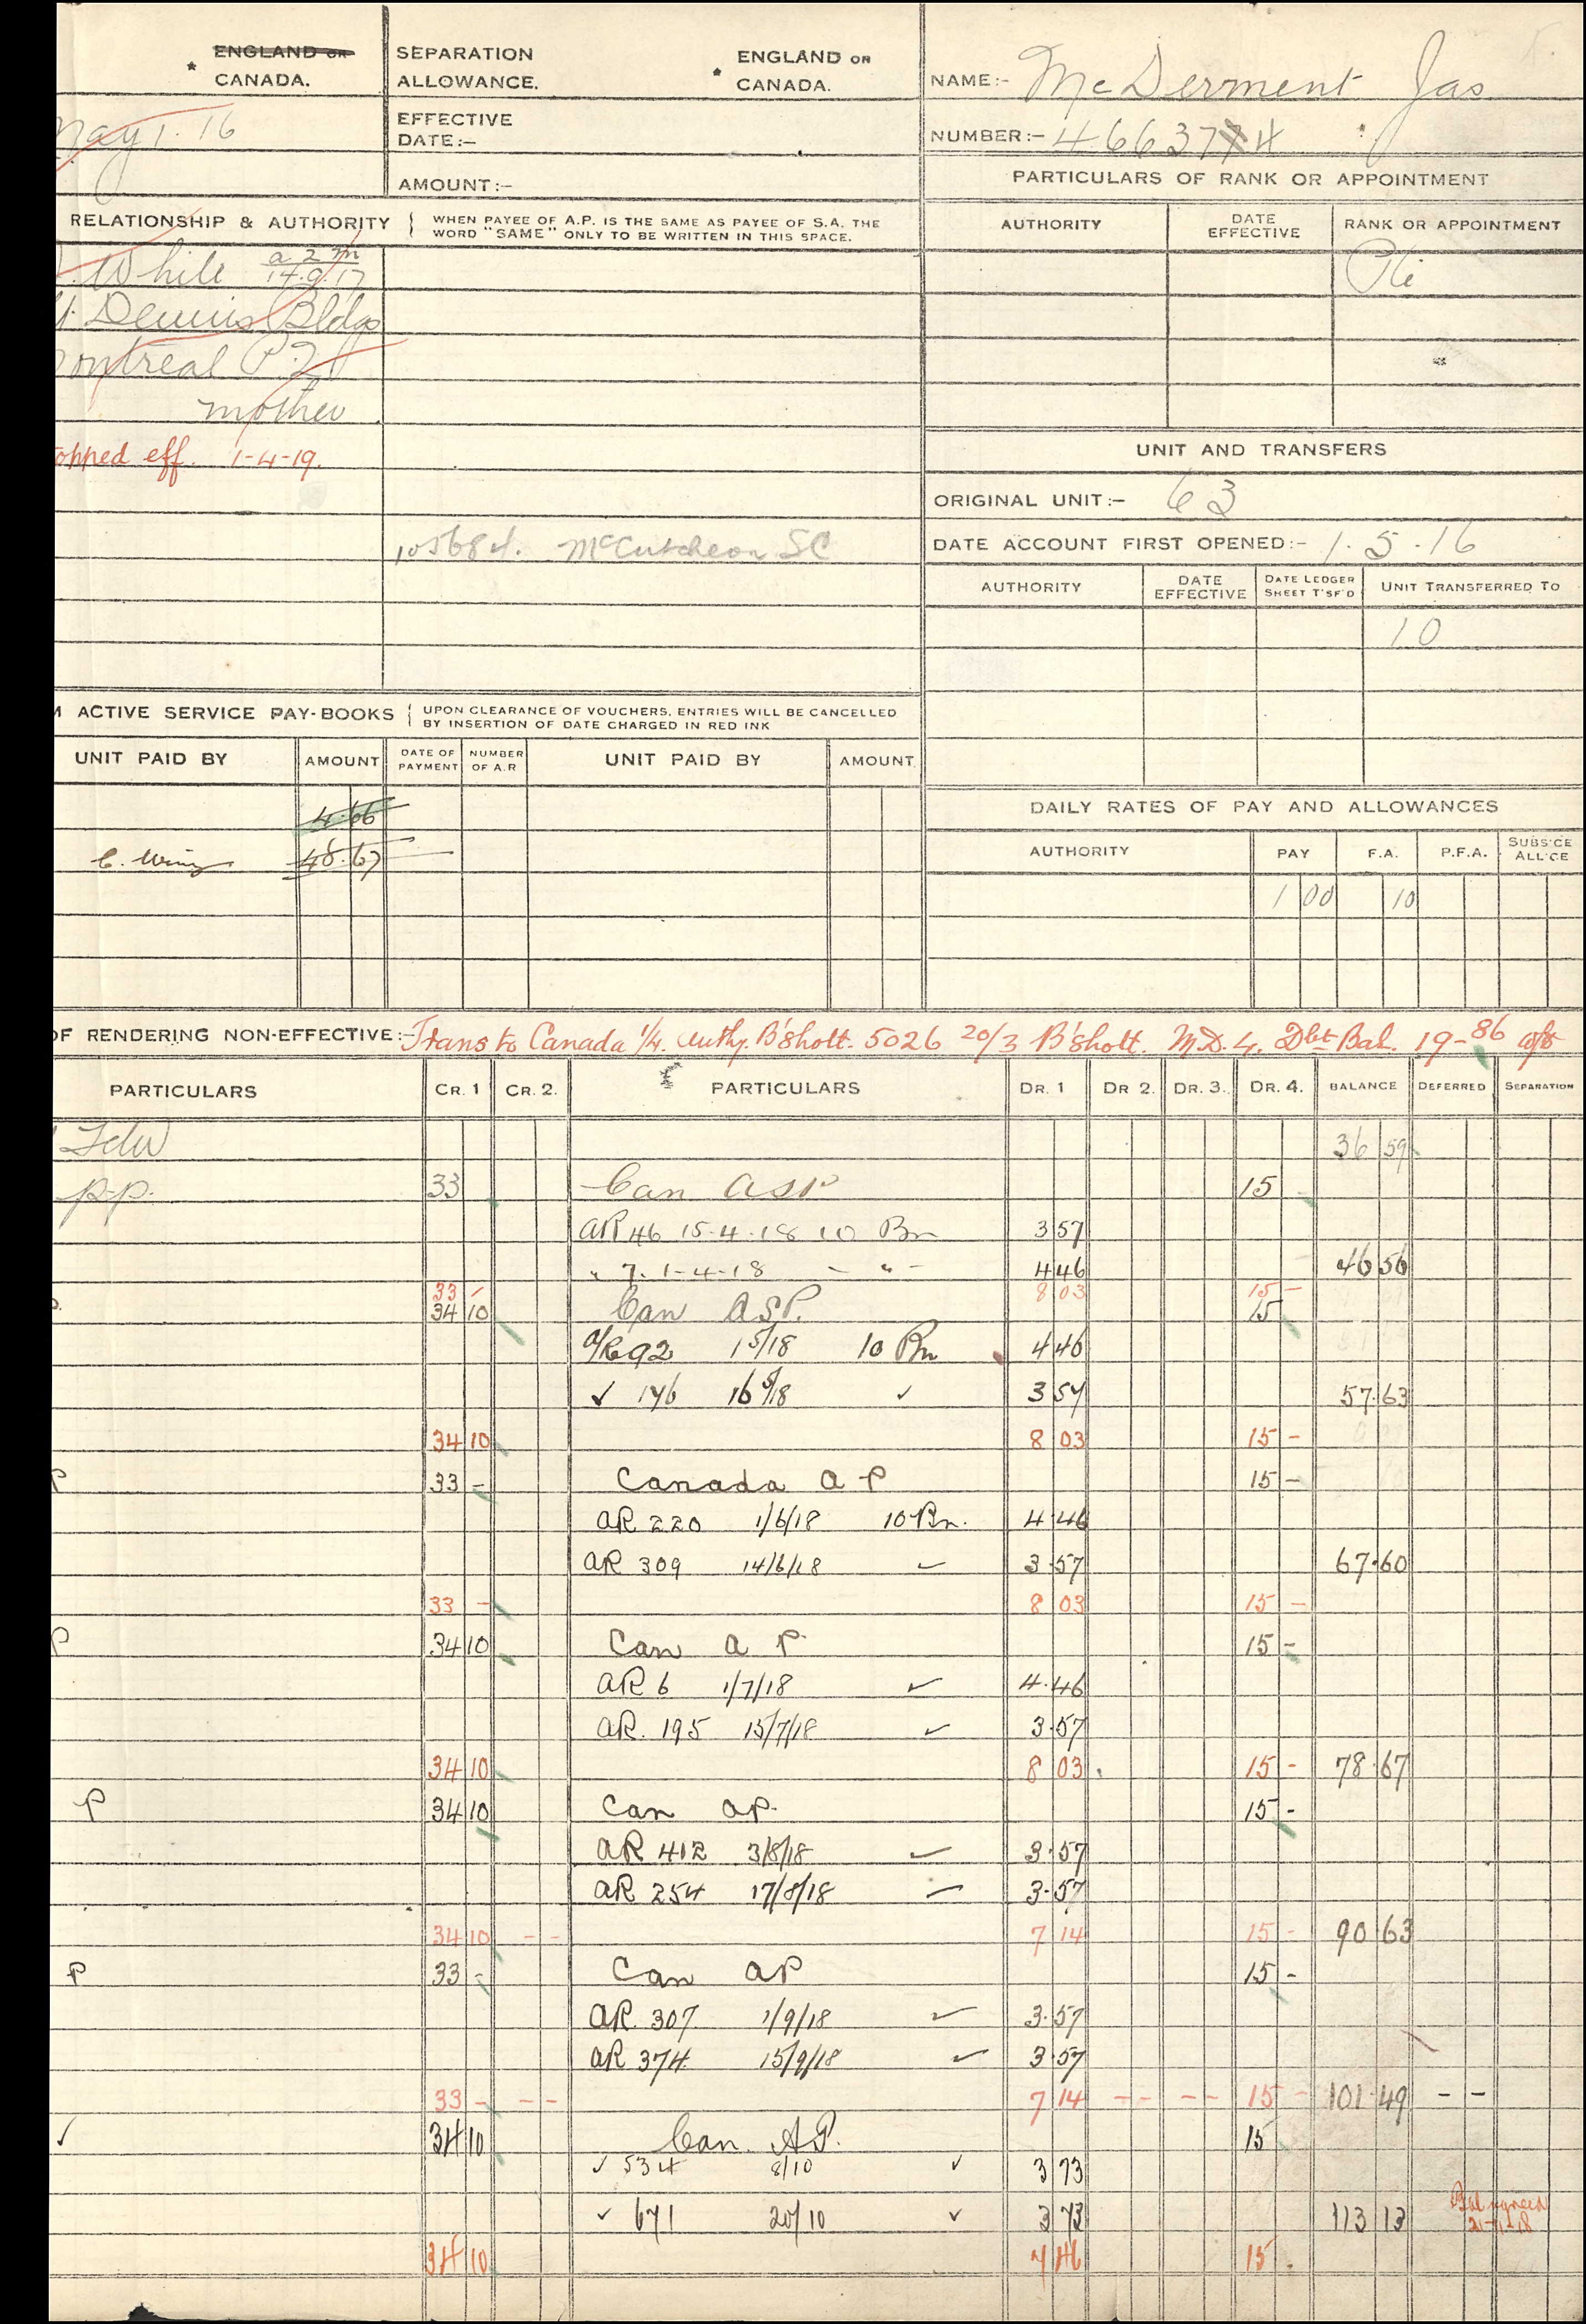 * ENGLAND OR CANADA.
SEPARATION ALLOWANCE.
* ENGLAND OR CANADA.
NAME:- McDerment Jas
May 1. 16
EFFECTIVE DATE:-
NUMBER:- 466374
AMOUNT:-
PARTICULARS OF RANK OR APPOINTMENT
RELATIONSHIP & AUTHORITY
WHEN PAYEE OF A.P. IS THE SAME AS PAYEE OF S.A. THE WORD "SAME" ONLY TO BE WRITTEN IN THIS SPACE.
AUTHORITY DATE EFFECTIVE RANK OR APPOINTMENT
White a 2 m 14.9.17
Pte
Dennis Bldgs
ontreal P.2
mother
opped eff. 1-4-19.
UNIT AND TRANSFERS
ORIGINAL UNIT:- 63
105684. McCutcheon SC
DATE ACCOUNT FIRST OPENED:- 1.5.16
AUTHORITY DATE EFFECTIVE DATE LEDGER SHEET T'SF'D UNIT TRANSFERRED TO
10
M ACTIVE SERVICE PAY-BOOKS
UPON CLEARANCE OF VOUCHERS, ENTRIES WILL BE CANCELLED BY INSERTION OF DATE CHARGED IN RED INK
UNIT PAID BY AMOUNT DATE OF PAYMENT NUMBER OF A.R UNIT PAID BY AMOUNT
4.66
C. Wing 48.67
DAILY RATES OF PAY AND ALLOWANCES
AUTHORITY PAY F.A. P.F.A. SUBS'CE ALL'CE
1 00 10
OF RENDERING NON-EFFECTIVE:- Trans to Canada 1/4. Authy. B'shott. 5026 20/3 B'shott. M.D. 4. Dbt Bal. 19-86
PARTICULARS CR. 1 CR. 2. PARTICULARS DR. 1 DR 2. DR. 3. DR. 4. BALANCE DEFERRED SEPARATION
36 59
p.p. 33 Can ASP 15
AR 46 15.4.18 10 Bn 3 57
" 7. 1-4-18 - " - 4 46 46 56
33 - 8 03 15 -
34 10 Can ASP. 15
A/R 92 1 5/18 10 Bn 4 46
✓ 146 16 5/18 ✓ 3 57 57.63
34 10 8 03 15 -
P 33 - Canada AP 15 -
AR 220 1/6/18 10 Bn. 4.46
AR 309 14/6/18 ✓ 3.57 67.60
33 - 8 03 15 -
P 34 10 Can AP 15 -
AR 6 1/7/18 ✓ 4.46
AR. 195 15/7/18 ✓ 3.57
34 10 8 03. 15 - 78.67
P 34 10 Can AP. 15 -
AR 412 3/8/18 ✓ 3.57
AR 254 17/8/18 ✓ 3.57
34 10 - - 7 14 15 - 90 63
P 33 - Can AP 15 -
AR. 307 1/9/18 ✓ 3.57
AR 374 15/9/18 ✓ 3.57
33 - - - 7 14 - - - - 15 - 101 49 - -
✓ 34 10 Can. AP. 15
✓ 534 8/10 ✓ 3 73
✓ 671 20/10 ✓ 3 73 113 13
34 10 7 46 15.